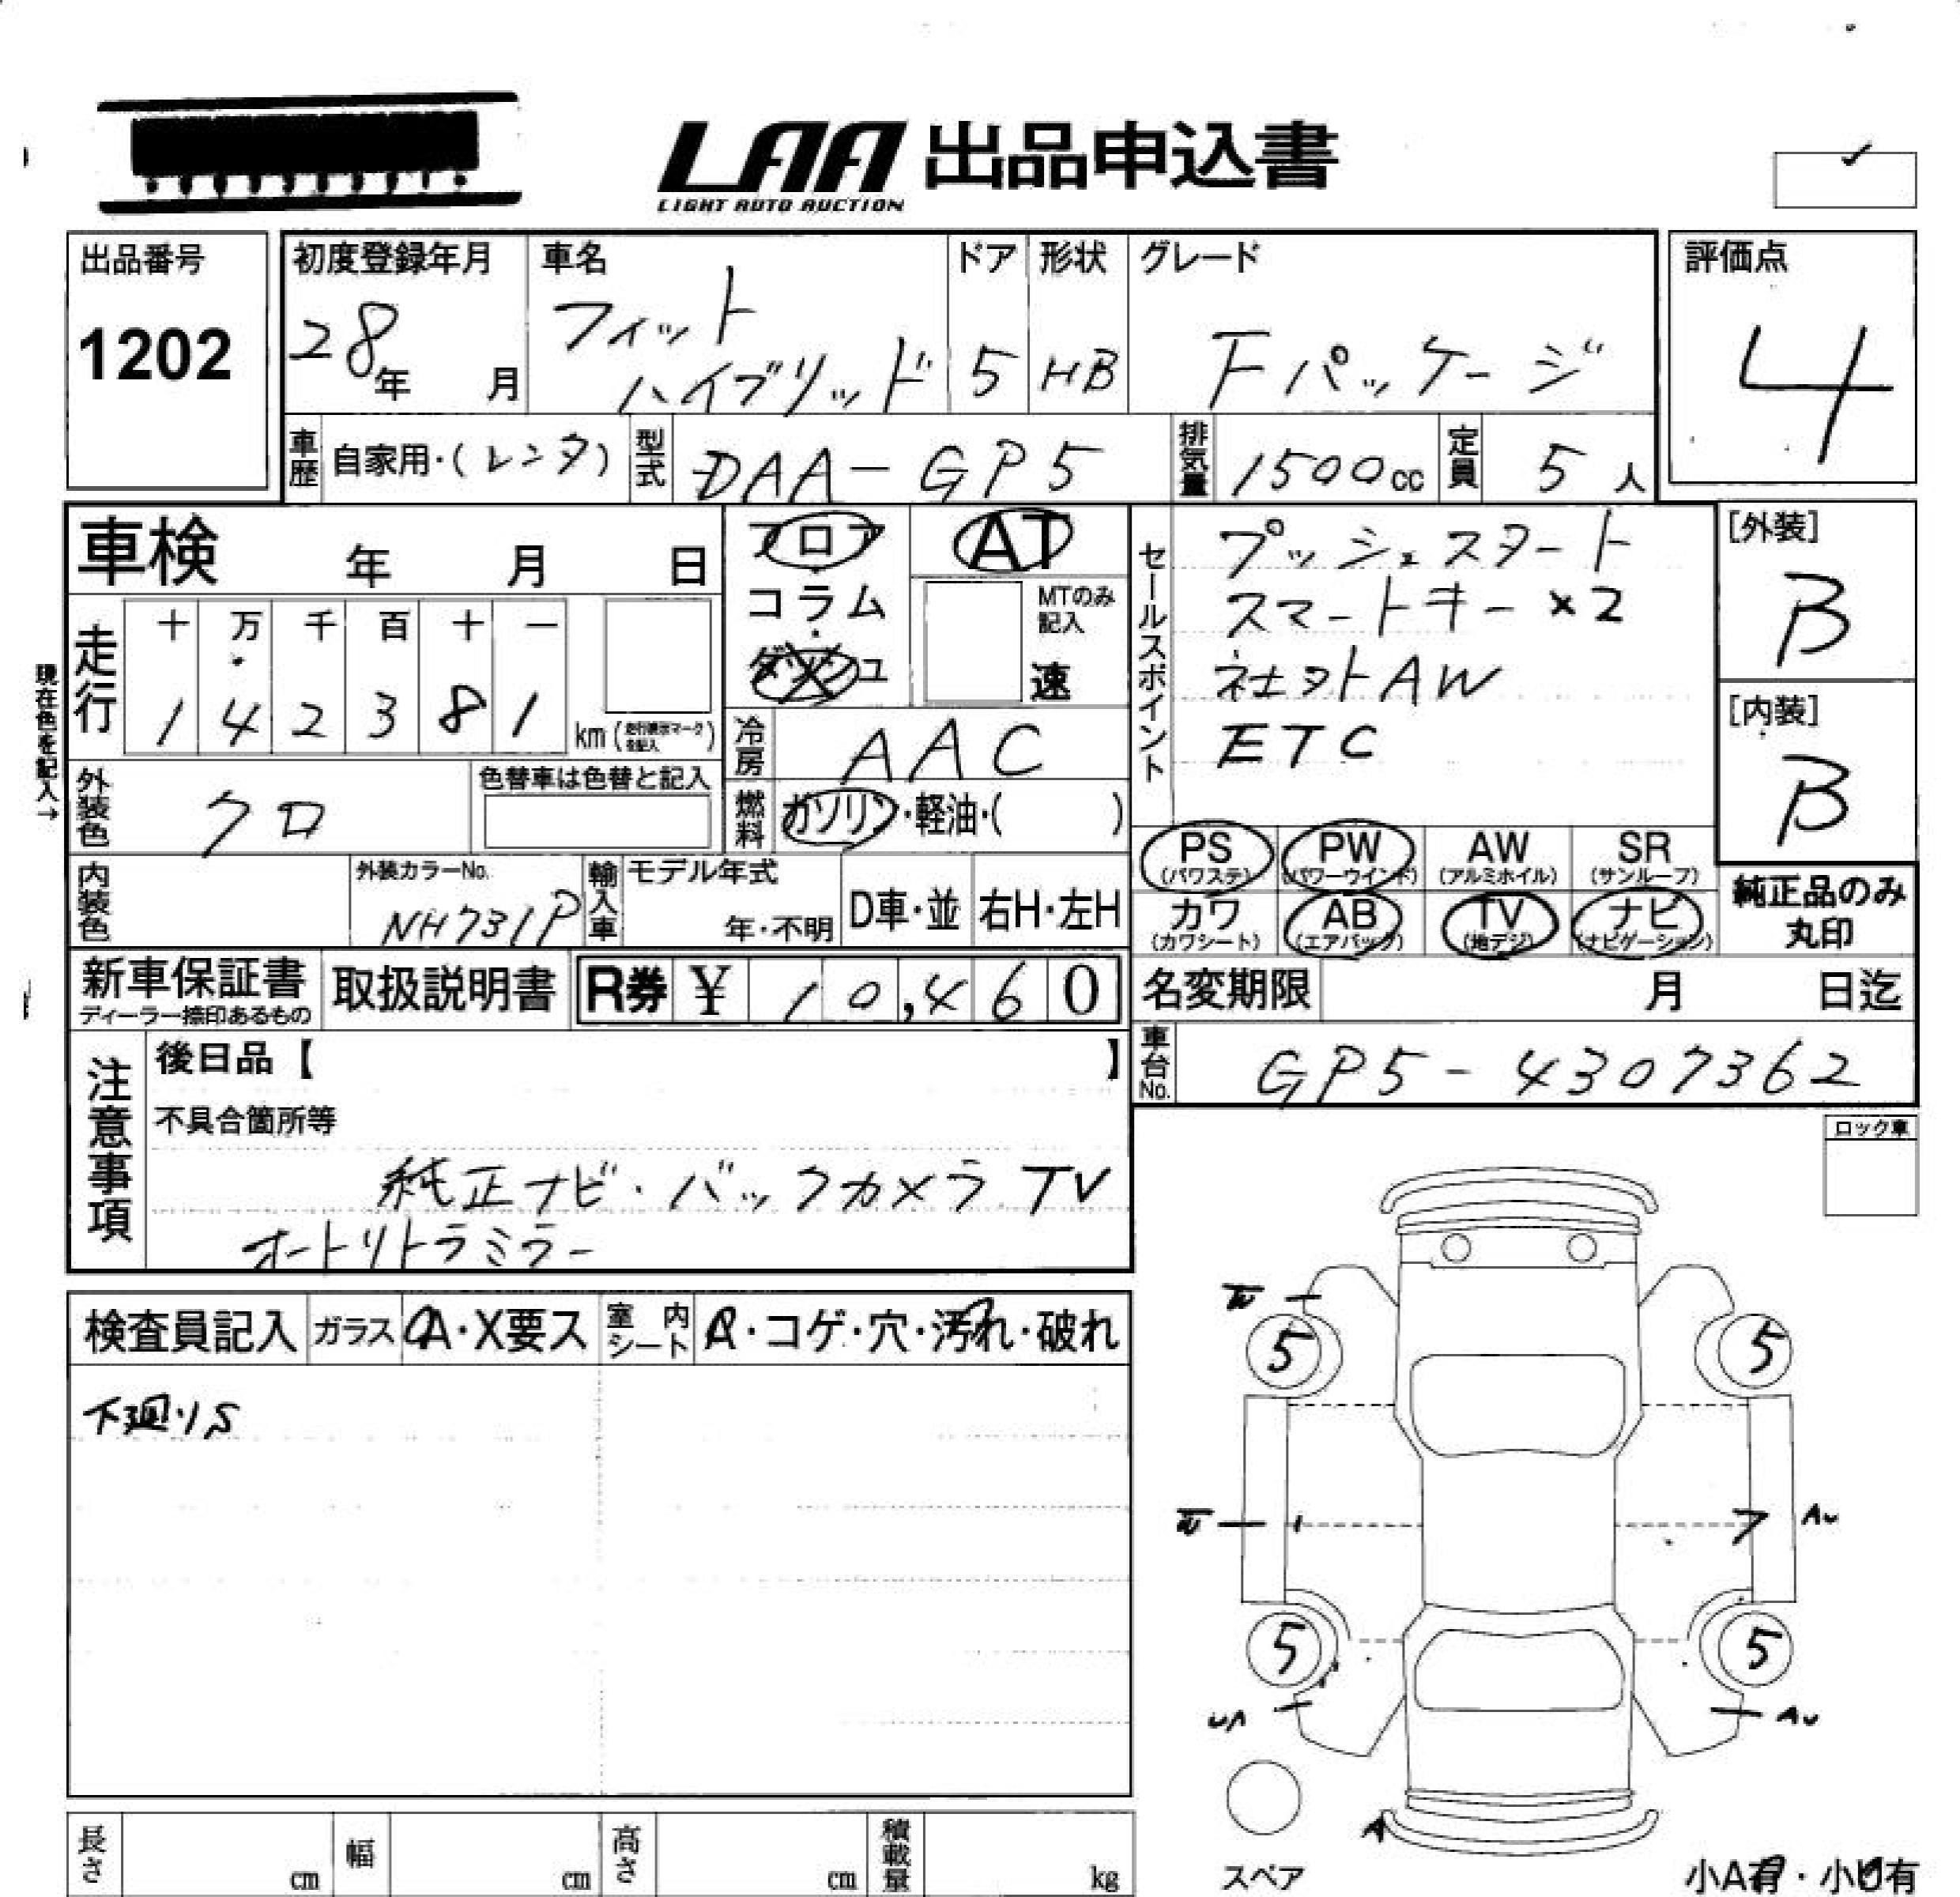 LAA 出品申込書
LIGHT AUTO AUCTION
出品番号
1202
初度登録年月
28年 月
車名
フィット
ハイブリッド
ドア
5
形状
HB
グレード
Fパッケージ
評価点
4
車歴 自家用・(レンタ)
型式 DAA-GP5
排気量 1500cc
定員 5人
車検 年 月 日
フロア
コラム
ダッシュ
AT
MTのみ記入
速
セールスポイント
プッシュスタート
スマートキー×2
社外AW
ETC
[外装]
B
[内装]
B
現在色を記入→
走行
十 万 千 百 十 一
1 4 2 3 8 1 km
冷房 AAC
燃料 ガソリン・軽油・( )
外装色 クロ
色替車は色替と記入
内装色
外装カラーNo.
NH731P
輸入車
モデル年式
年・不明
D車・並
右H・左H
PS (パワステ)
PW (パワーウインド)
AW (アルミホイル)
SR (サンルーフ)
カワ (カワシート)
AB (エアバック)
TV (地デジ)
ナビ (ナビゲーション)
純正品のみ
丸印
新車保証書
ディーラー捺印あるもの
取扱説明書
R券 ¥ 10,460
名変期限 月 日迄
車台No. GP5-4307362
注意事項
後日品【 】
不具合箇所等
純正ナビ・バックカメラ TV
オートリトラミラー
ロック車
検査員記入
ガラス A・X要ス
室内シート ・コゲ・穴・汚れ・破れ
下廻りS
5
5
AU
5
5
AU
A
スペア
長さ cm
幅 cm
高さ cm
積載量 kg
小A有・小U有